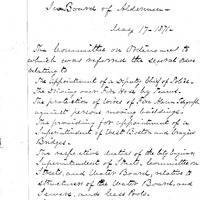 In Board of Aldermen
May 17 - 1871 -
The Committee on Ordinances to
which was referred the several Orders
relating to
The appointment of a Deputy Chief of Police.
The Driving over Fire Hose by Teams.
The protection of wires of Fire Alarm Telegraph
against persons moving buildings.
The providing for appointment of a
Superintendent of West Boston and Cragie's
Bridges.
The respective duties of the City Engineer
Superintendent of Streets, Committee on
Streets, and Water Board, relative to
structures of the Water Board, and
Sewers, and Cess Pools.